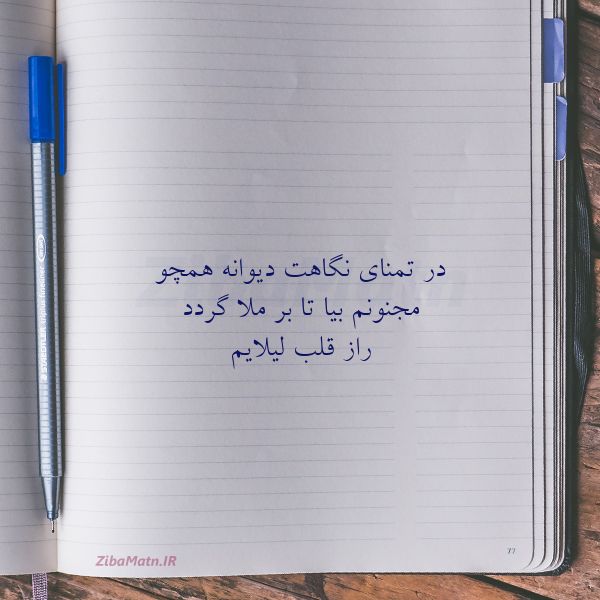 در تمنای نگاهت دیوانه همچو
مجنونم بیا تا بر ملا گردد
راز قلب لیلایم
ZibaMatn.IR